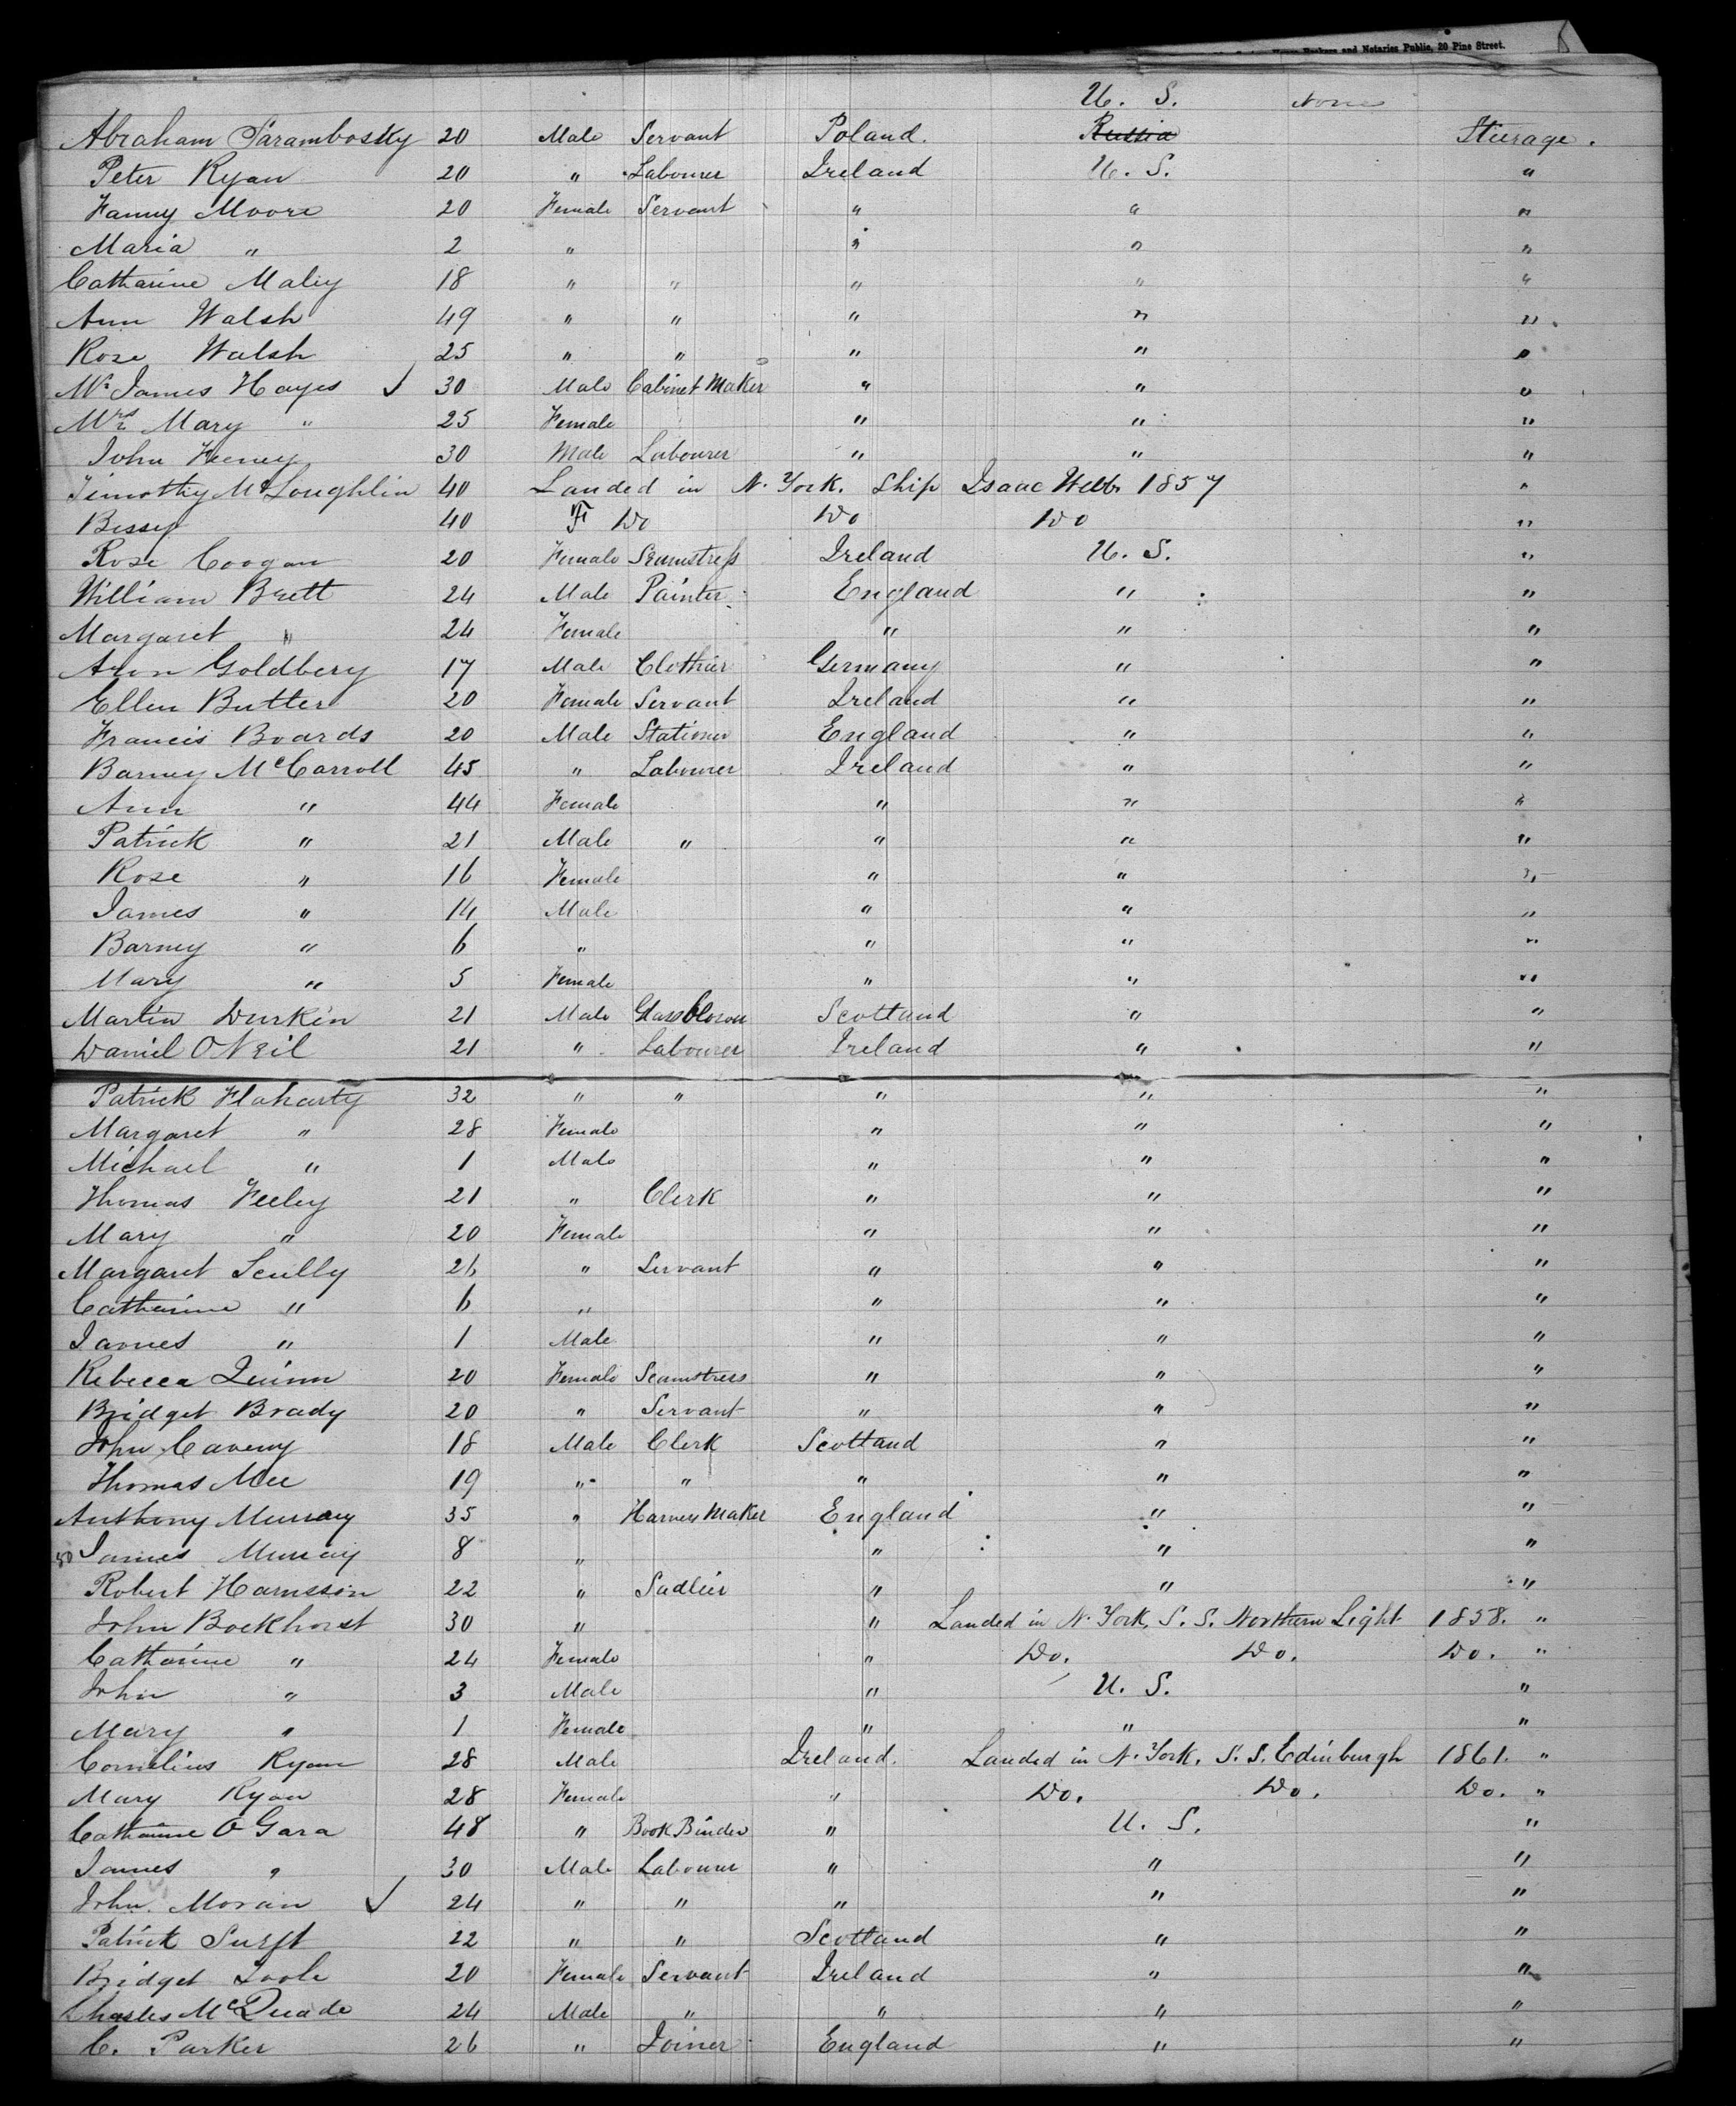 and Notaries Public, 20 Pine Street.
U. S. None
Abraham Sarambosky 20 Male Servant Poland. Russia Steerage.
Peter Ryan 20 " Labourer Ireland U. S. "
Fanny Moore 20 Female Servant " " "
Maria " 2 " " " "
Catharine Maliy 18 " " " " "
Ann Walsh 49 " " " " "
Rose Walsh 25 " " " " "
Mr James Hayes ✓ 30 Male Cabinet Maker " " "
Mrs Mary " 25 Female " " "
John Feeney 30 Male Labourer " " "
Timothy McLoughlin 40 Landed in N. York. Ship Isaac Webb 1857 "
Bessy 40 F Do Do Do "
Rose Coogan 20 Female Seamstress Ireland U. S. "
William Brett 24 Male Painter England " "
Margaret " 24 Female " " "
Aron Goldbery 17 Male Clothier Germany " "
Ellen Butler 20 Female Servant Ireland " "
Francis Boards 20 Male Stationer England " "
Barney McCarroll 45 " Labourer Ireland " "
Ann " 44 Female " " "
Patrick " 21 Male " " " "
Rose " 16 Female " " "
James " 14 Male " " "
Barney " 6 " " " "
Mary " 5 Female " " "
Martin Durkin 21 Male Glassblower Scotland " "
Daniel O Neil 21 " Labourer Ireland " "
Patrick Flaharty 32 " " " " "
Margaret " 28 Female " " "
Michael " 1 Male " " "
Thomas Feeley 21 " Clerk " " "
Mary " 20 Female " " "
Margaret Scully 26 " Servant " " "
Catharine " 6 " " " "
James " 1 Male " " "
Rebecca Quinn 20 Female Seamstress " " "
Bridget Brady 20 " Servant " " "
John Caveny 18 Male Clerk Scotland " "
Thomas Mee 19 " " " " "
Anthony Murray 35 " Harness Maker England " "
50 James Murray 8 " " " "
Robert Harnsson 22 " Sadleir " " "
John Bockhorst 30 " " Landed in N. York, S. S. Northern Light 1858. "
Catharine " 24 Female " Do. Do. Do. "
John " 3 Male " U. S. "
Mary " 1 Female " " "
Cornelius Ryan 28 Male Ireland. Landed in N. York. S. S. Edinburgh 1861. "
Mary Ryan 28 Female " Do. Do. Do. "
Catharine O Gara 48 " Book Binder " U. S. "
James " 30 Male Labourer " " "
John Moran ✓ 24 " " " " "
Patrick 22 " " Scotland " "
Bridget Toole 20 Female Servant Ireland " "
Charles McQuade 24 Male " " " "
C. Parker 26 " Joiner England " "